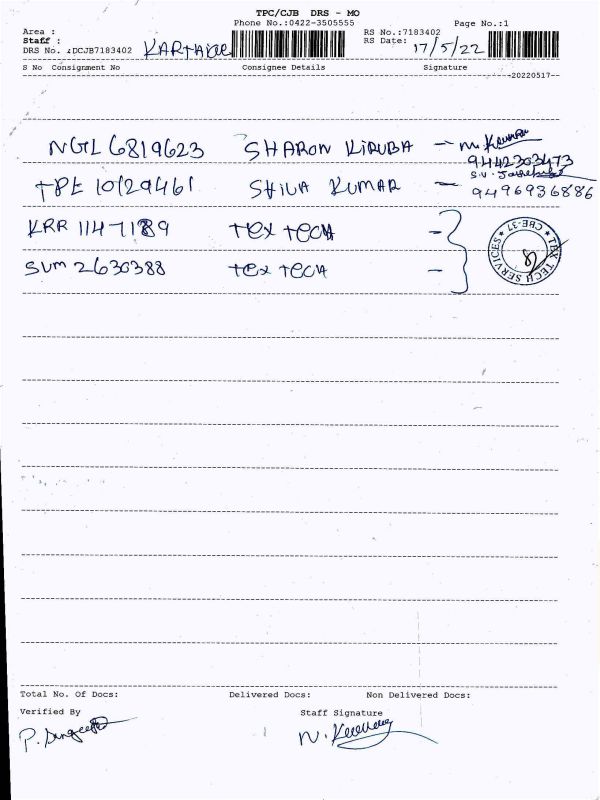 TPC/CJB DRS - MO
Phone No.:0422-3505555 Page No.:1
Area : RS No.:7183402
Staff : RS Date: 17/5/22
DRS No. :DCJB7183402
S No Consignment No Consignee Details Signature
--20220517--
NGL 6819623 SHARON KIRUBA - M. Kumar
9442303473
TPE 10129461 SHIVA KUMAR - S.V.
9496936886
KRR 11471189 TEX TECH -
SUM 2630388 TEX TECH -
TEX TECH SERVICES * CBE-37 *
Total No. Of Docs: Delivered Docs: Non Delivered Docs:
Verified By Staff Signature